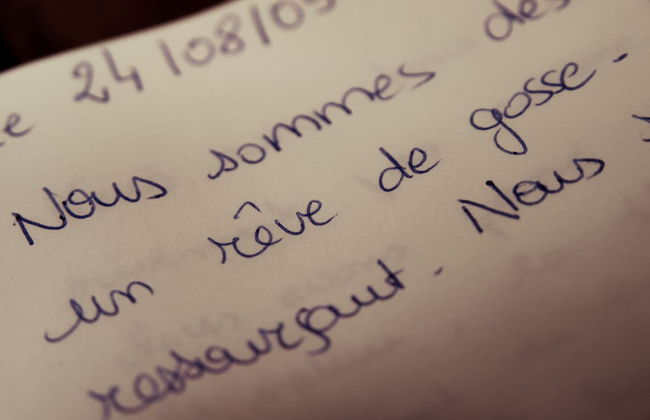 e 24/08/09
Nous sommes des
un rêve de gosse.
ressourçant. Nous